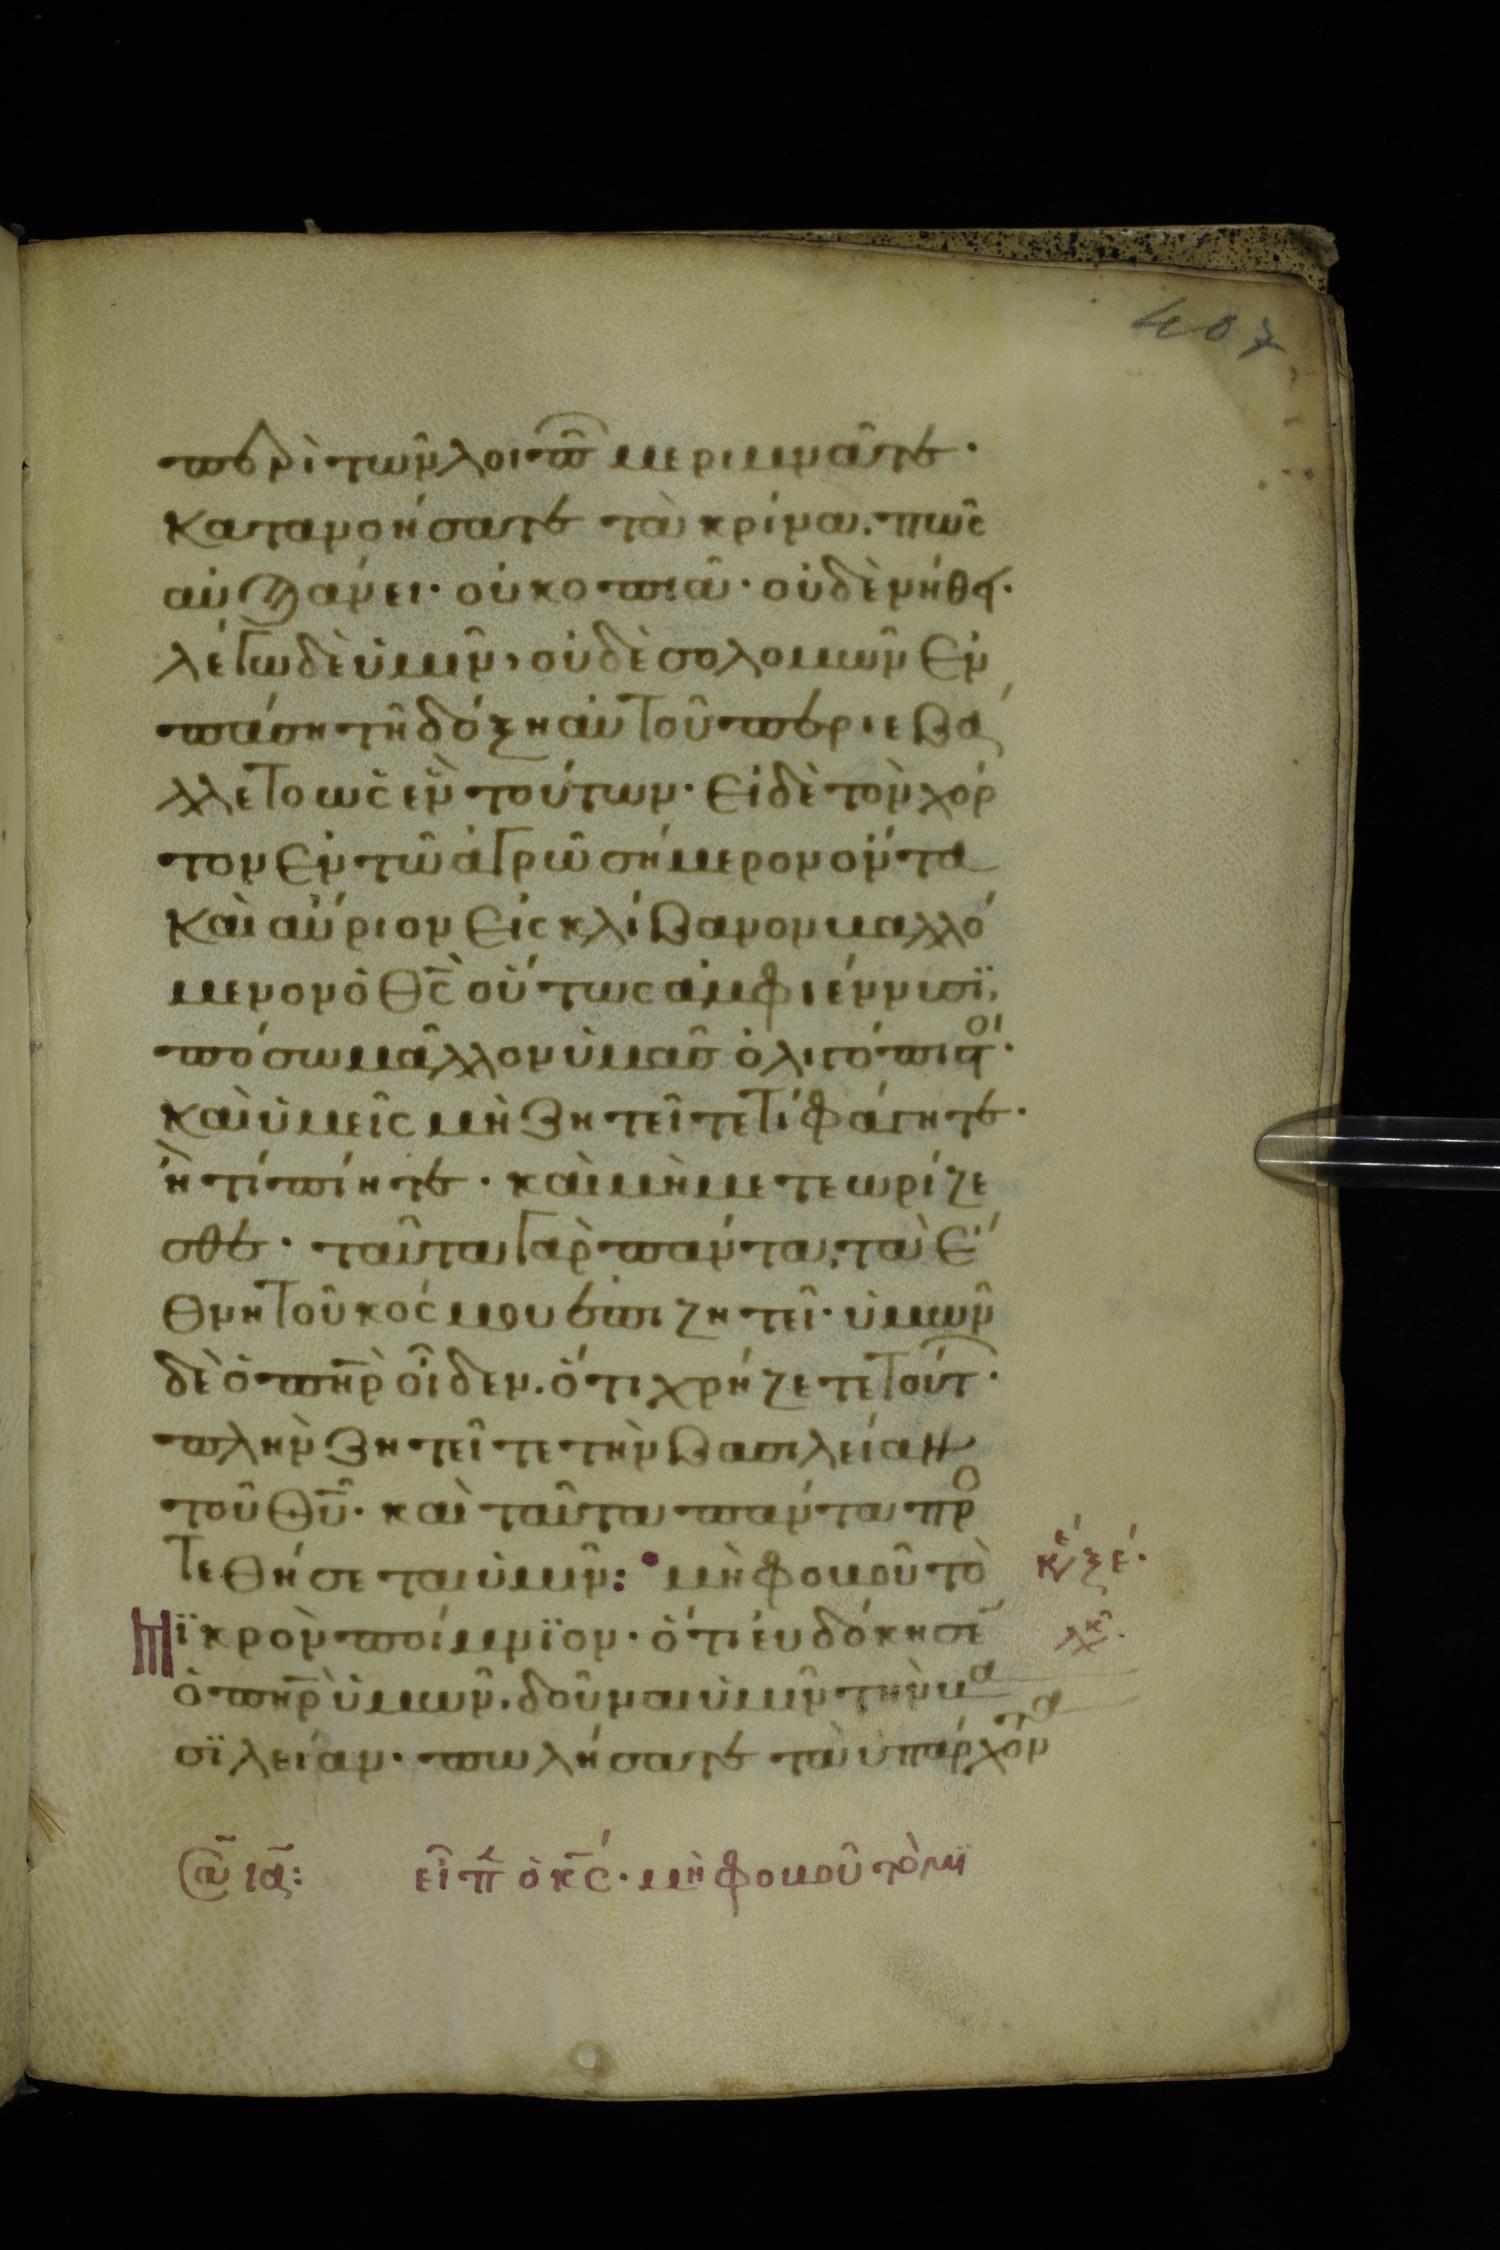 407
περὶ τῶν λοιπῶ μεριμνᾶτε·
κατανοήσατε τὰ κρίνα. πῶς
αὐξάνει· οὐ κοπιᾶ· οὐδὲ νήθει·
λέγω δὲ ὑμῖν, οὐδὲ σολομῶν ἐν
πάση τῆ δόξη αὐτοῦ περιεβά
λλετο ὡς ἓν τούτων· εἰ δὲ τὸν χόρ
τον ἐν τῶ ἀγρῶ σήμερον ὄντα
καὶ αὔριον εἰς κλίβανον βαλλό
μενον ὁ θς̅ οὕτως ἀμφιέννυσϊ,
πόσω μᾶλλον ὑμᾶς ὀλιγόπιστοι·
καὶ ὑμεῖς μὴ ζητεῖτε τί φάγητε·
ἢ τί πίητε· καὶ μὴ μετεωρίζε
σθε· ταῦτα γὰρ πάντα, τὰ ἔ
θνη τοῦ κόσμου ἐπιζητεῖ· ὑμῶν
δὲ ὁ πη̅ρ οἶδεν. ὅτι χρήζετε τούτ·
πλὴν ζητεῖτε τὴν βασιλείαν
τοῦ θυ̅· καὶ ταῦτα πάντα προ
τεθήσεται ὑμῖν: μὴ φοβοῦ τὸ
μϊκρὸν ποίμνϊον· ὅτι ευδόκησε
ὁ πη̅ρ ὑμῶν. δοῦναι ὑμῖν τὴν βα
σϊλείαν· πωλήσατε τὰ ὑπάρχοντα
εἶπ ὁ κς̅· μὴ φοβοῦ τὸ μϊ